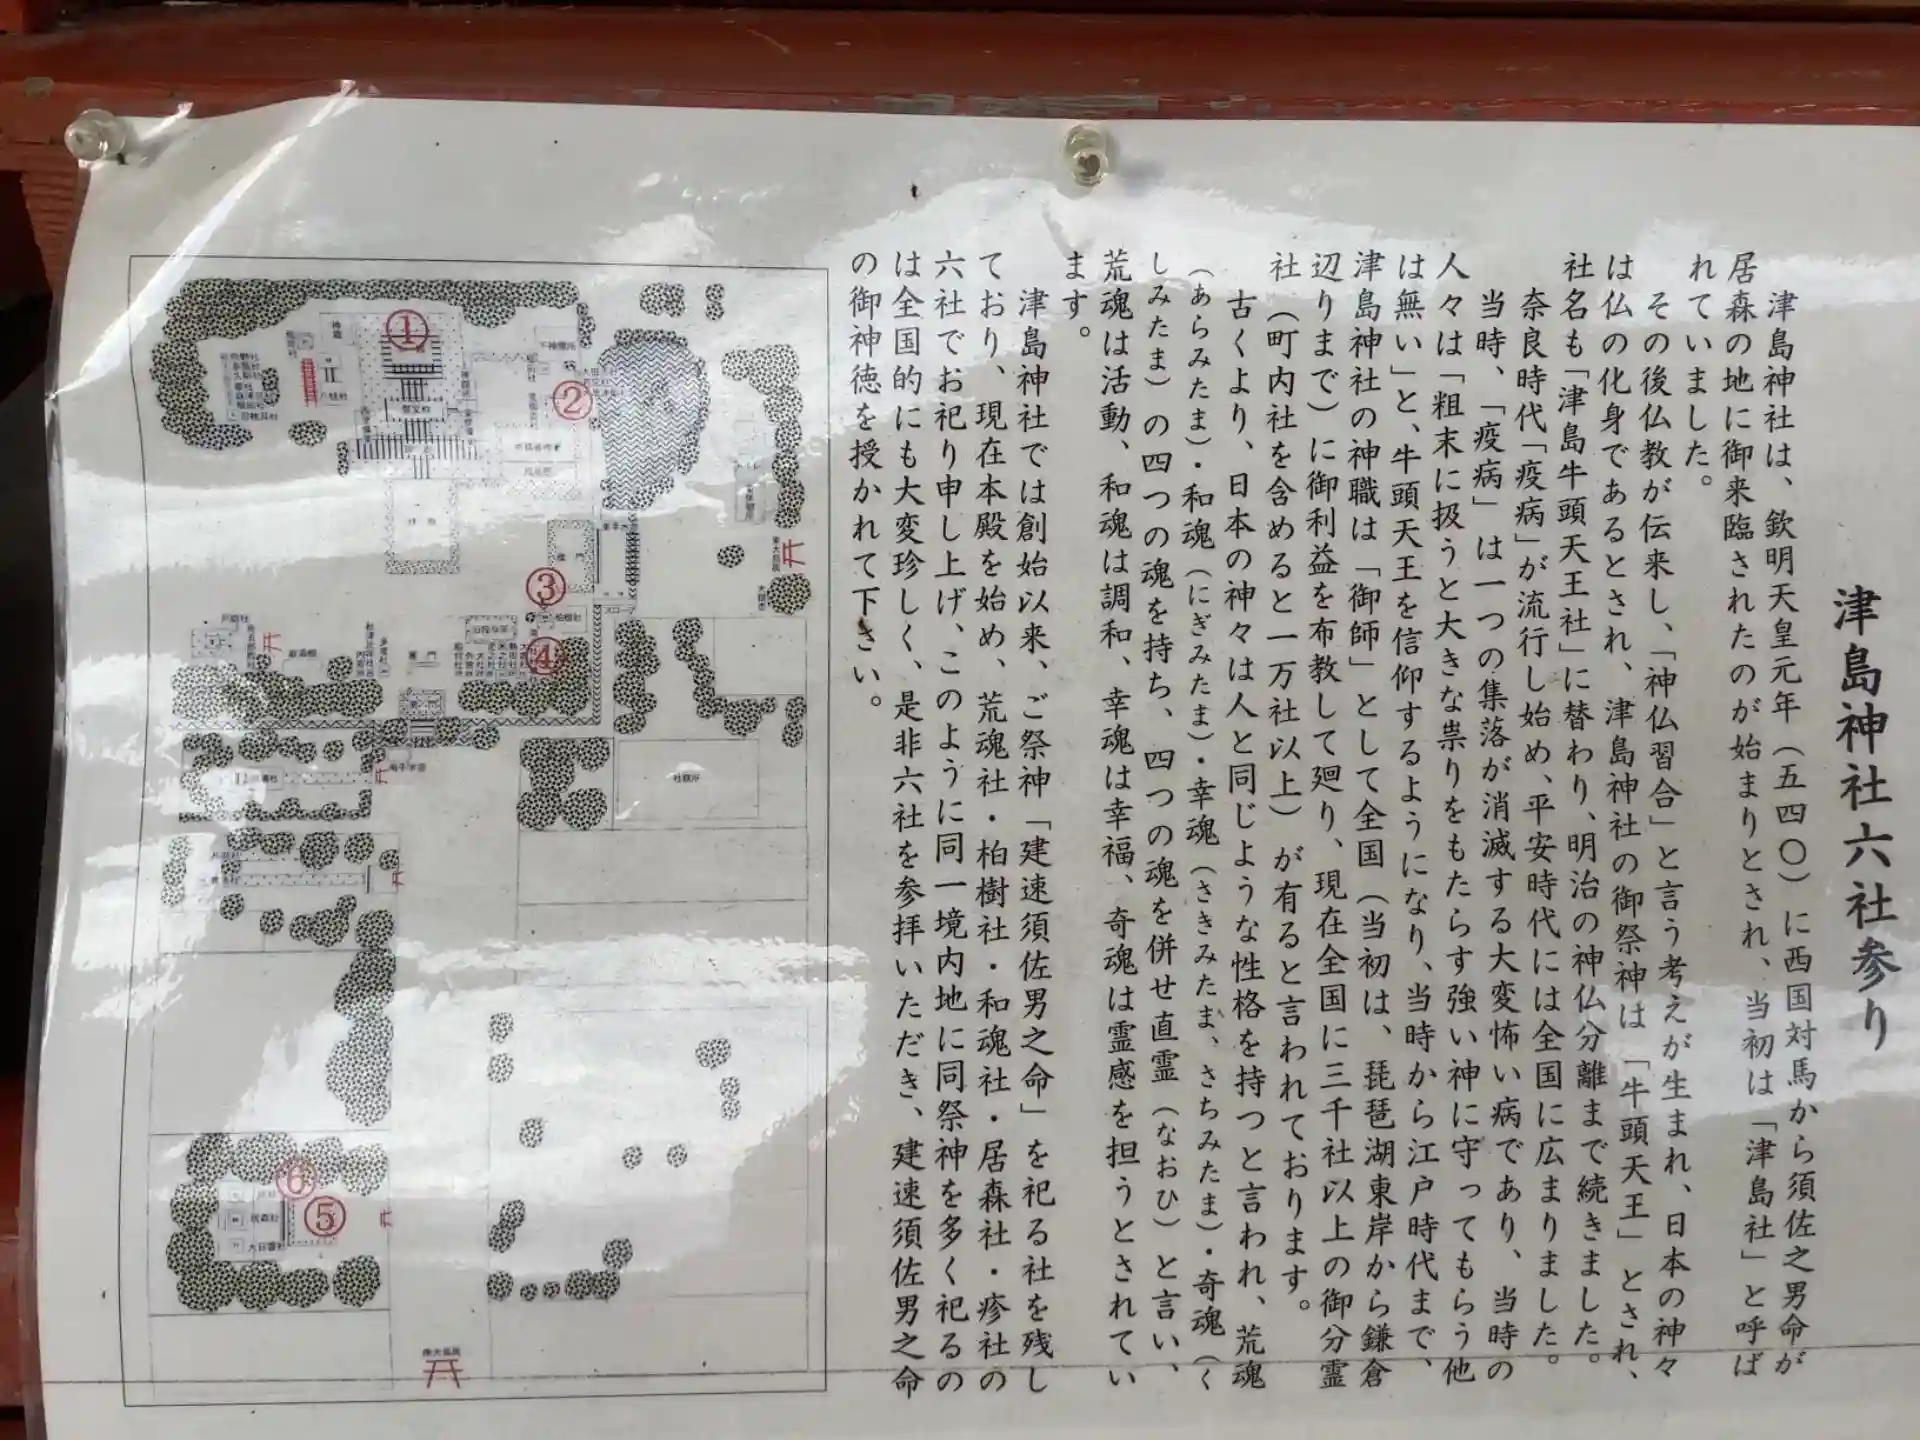 津島神社六社参り
津島神社は、欽明天皇元年（五四〇）に西国対馬から須佐之男命が
居森の地に御来臨されたのが始まりとされ、当初は「津島社」と呼ば
れていました。
その後仏教が伝来し、「神仏習合」と言う考えが生まれ、日本の神々
は仏の化身であるとされ、津島神社の御祭神は「牛頭天王」とされ、
社名も「津島牛頭天王社」に替わり、明治の神仏分離まで続きました。
奈良時代「疫病」が流行し始め、平安時代には全国に広まりました。
当時、「疫病」は一つの集落が消滅する大変怖い病であり、当時の
人々は「粗末に扱うと大きな祟りをもたらす強い神に守ってもらう他
は無い」と、牛頭天王を信仰するようになり、当時から江戸時代まで、
津島神社の神職は「御師」として全国（当初は、琵琶湖東岸から鎌倉
辺りまで）に御利益を布教して廻り、現在全国に三千社以上の御分霊
社（町内社を含めると一万社以上）が有ると言われております。
古くより、日本の神々は人と同じような性格を持つと言われ、荒魂
（あらみたま）・和魂（にぎみたま）・幸魂（さきみたま、さちみたま）・奇魂（く
しみたま）の四つの魂を持ち、四つの魂を併せ直霊（なおひ）と言い、
荒魂は活動、和魂は調和、幸魂は幸福、奇魂は霊感を担うとされてい
ます。
津島神社では創始以来、ご祭神「建速須佐男之命」を祀る社を残し
ており、現在本殿を始め、荒魂社・柏樹社・和魂社・居森社・疹社の
六社でお祀り申し上げ、このように同一境内地に同祭神を多く祀るの
は全国的にも大変珍しく、是非六社を参拝いただき、建速須佐男之命
の御神徳を授かれて下さい。
①
②
③
④
⑤
⑥
東大鳥居
スロープ
社務所
居森社
南大鳥居